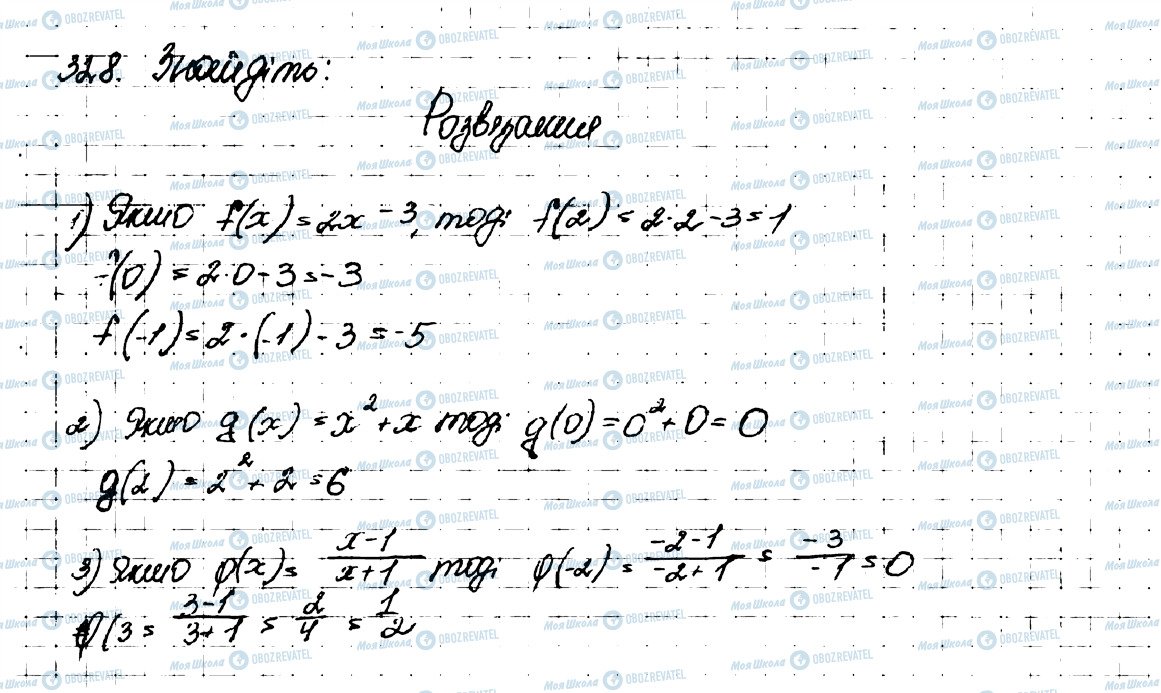 328. Знайдіть:
Розв'язання
1) Якщо f(x) = 2x - 3, тоді f(2) = 2·2 - 3 = 1
f(0) = 2·0 - 3 = -3
f(-1) = 2·(-1) - 3 = -5
2) Якщо g(x) = x² + x тоді g(0) = 0² + 0 = 0
g(2) = 2² + 2 = 6
3) Якщо φ(x) = (x-1)/(x+1) тоді φ(-2) = (-2-1)/(-2+1) = (-3)/(-1) = 0
φ(3 = (3-1)/(3+1) = 2/4 = 1/2
Моя Школа OBOZREVATEL